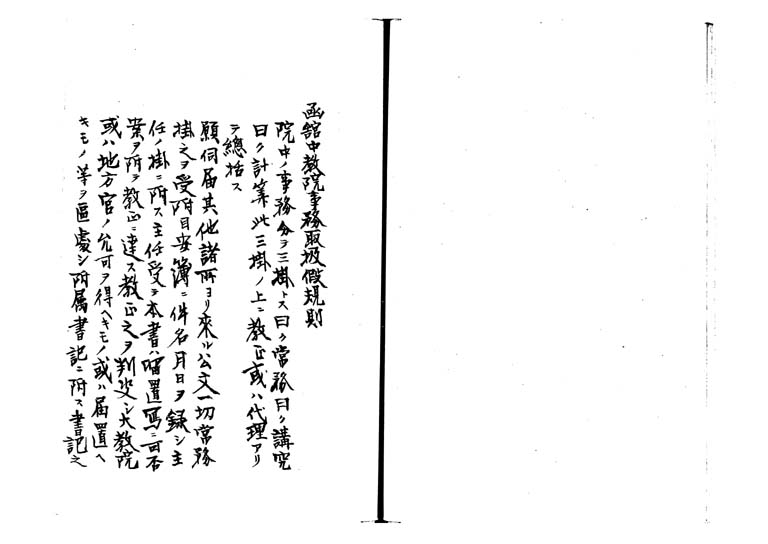 函館中教院事務取扱假規則
院中ノ事務分ヲ三掛トス曰ク常務曰ク講究
曰ク計算此三掛ノ上ニ教正或ハ代理アリ
テ總括ス
願伺届其他諸所ヨリ來ル公文一切常務
掛之ヲ受附目安簿ニ件名月日ヲ録シ主
任ノ掛ニ附ス主任受テ本書ハ留置寫ニ可否
案ヲ附テ教正ニ達ス教正之ヲ判決シ大教院
或ハ地方官ノ允可ヲ得ヘキモノ或ハ届置ヘ
キモノ等ヲ區處シ附属書記ニ附ス書記之